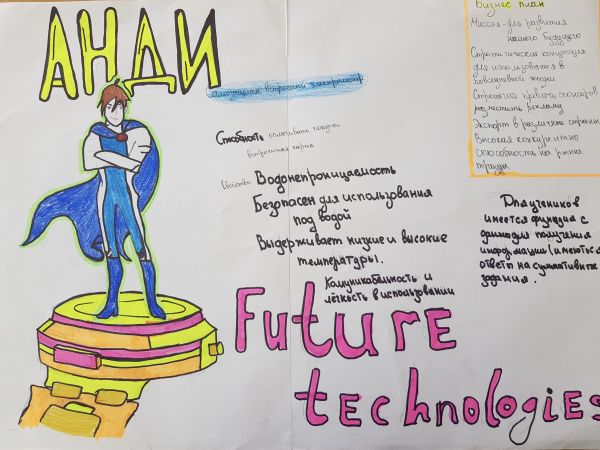 АНДИ
Способность оплачивать покупки
встроенная карта
Свойства: Водонепроницаемость
Безопасен для использования
под водой
Выдерживает низкие и высокие
температуры.
Комуникабельность и
лёгкость в использовании
Future
technologies
Бизнес план
Миссия - для развития
нашего будущего
для использования в
повседневной жизни
Стратегия привлечь спонсоров
разместить рекламу
Экспорт в различные страны
Высокая конкурентно
способность на рынке
труда
Для учеников
имеется функция с
данными для получения
информации (имеются
ответы на суммативные
задания.